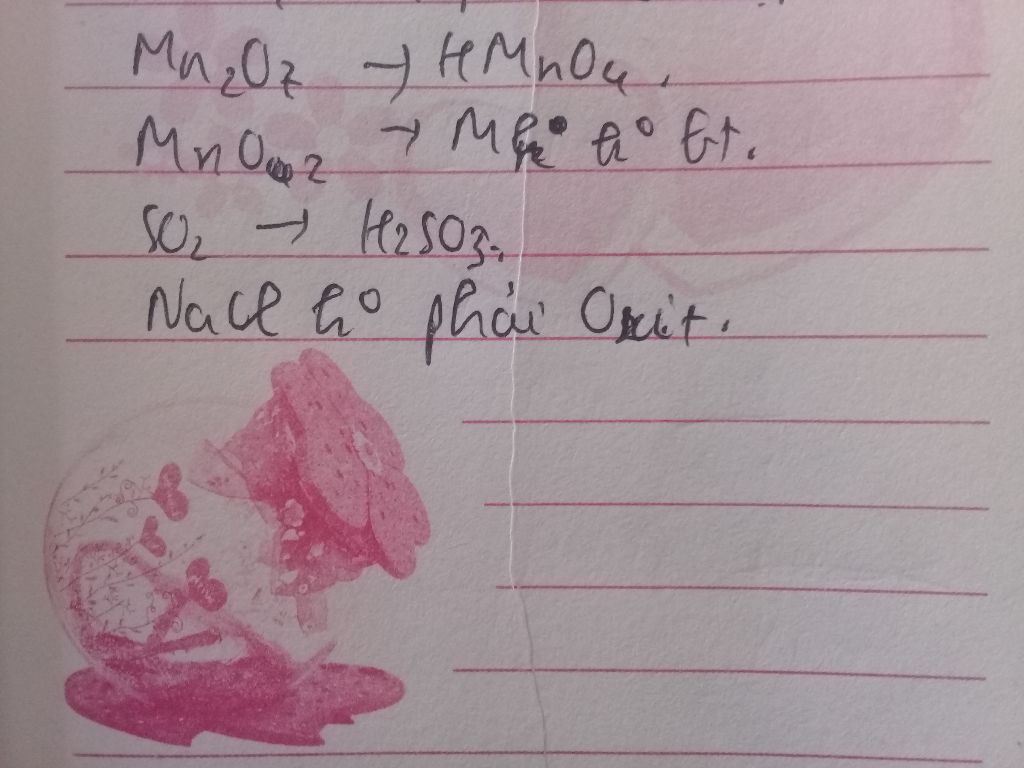 Mn2O7 → HMnO4.
MnO2 → k° bt.
SO2 → H2SO3.
NaCl k° phải Oxit.